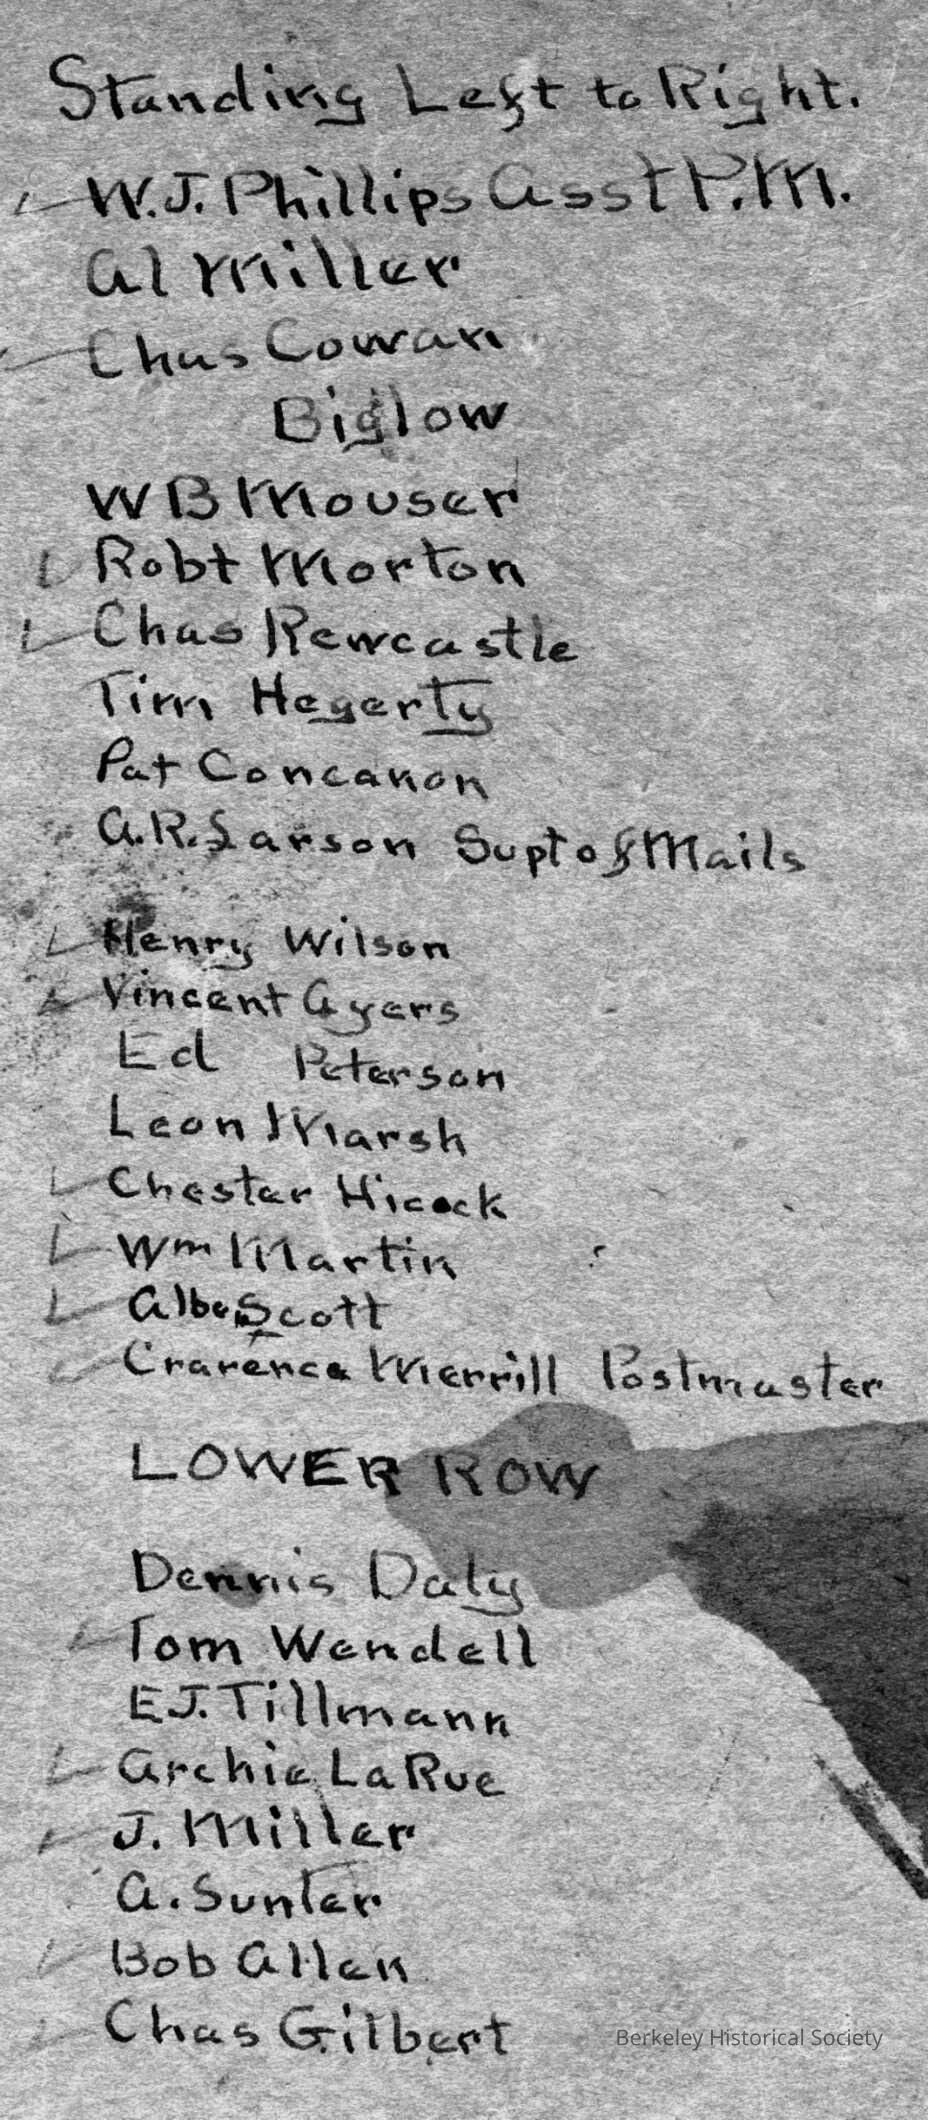 Standing Left to Right.
W.J. Phillips Asst P.M.
Al Miller
Chas Cowan
Biglow
W B Mouser
Robt Morton
Chas Rewcastle
Tim Hegerty
Pat Concanon
A.R. Larson Supt of Mails
Henry Wilson
Vincent Ayers
Ed Peterson
Leon Marsh
Chester Hicock
Wm Martin
Scott
Crarence Merrill Postmaster
LOWER ROW
Dennis Daly
Tom Wendell
E.J. Tillmann
Archie LaRue
J. Miller
A. Sunter
Bob Allen
Chas Gilbert
Berkeley Historical Society